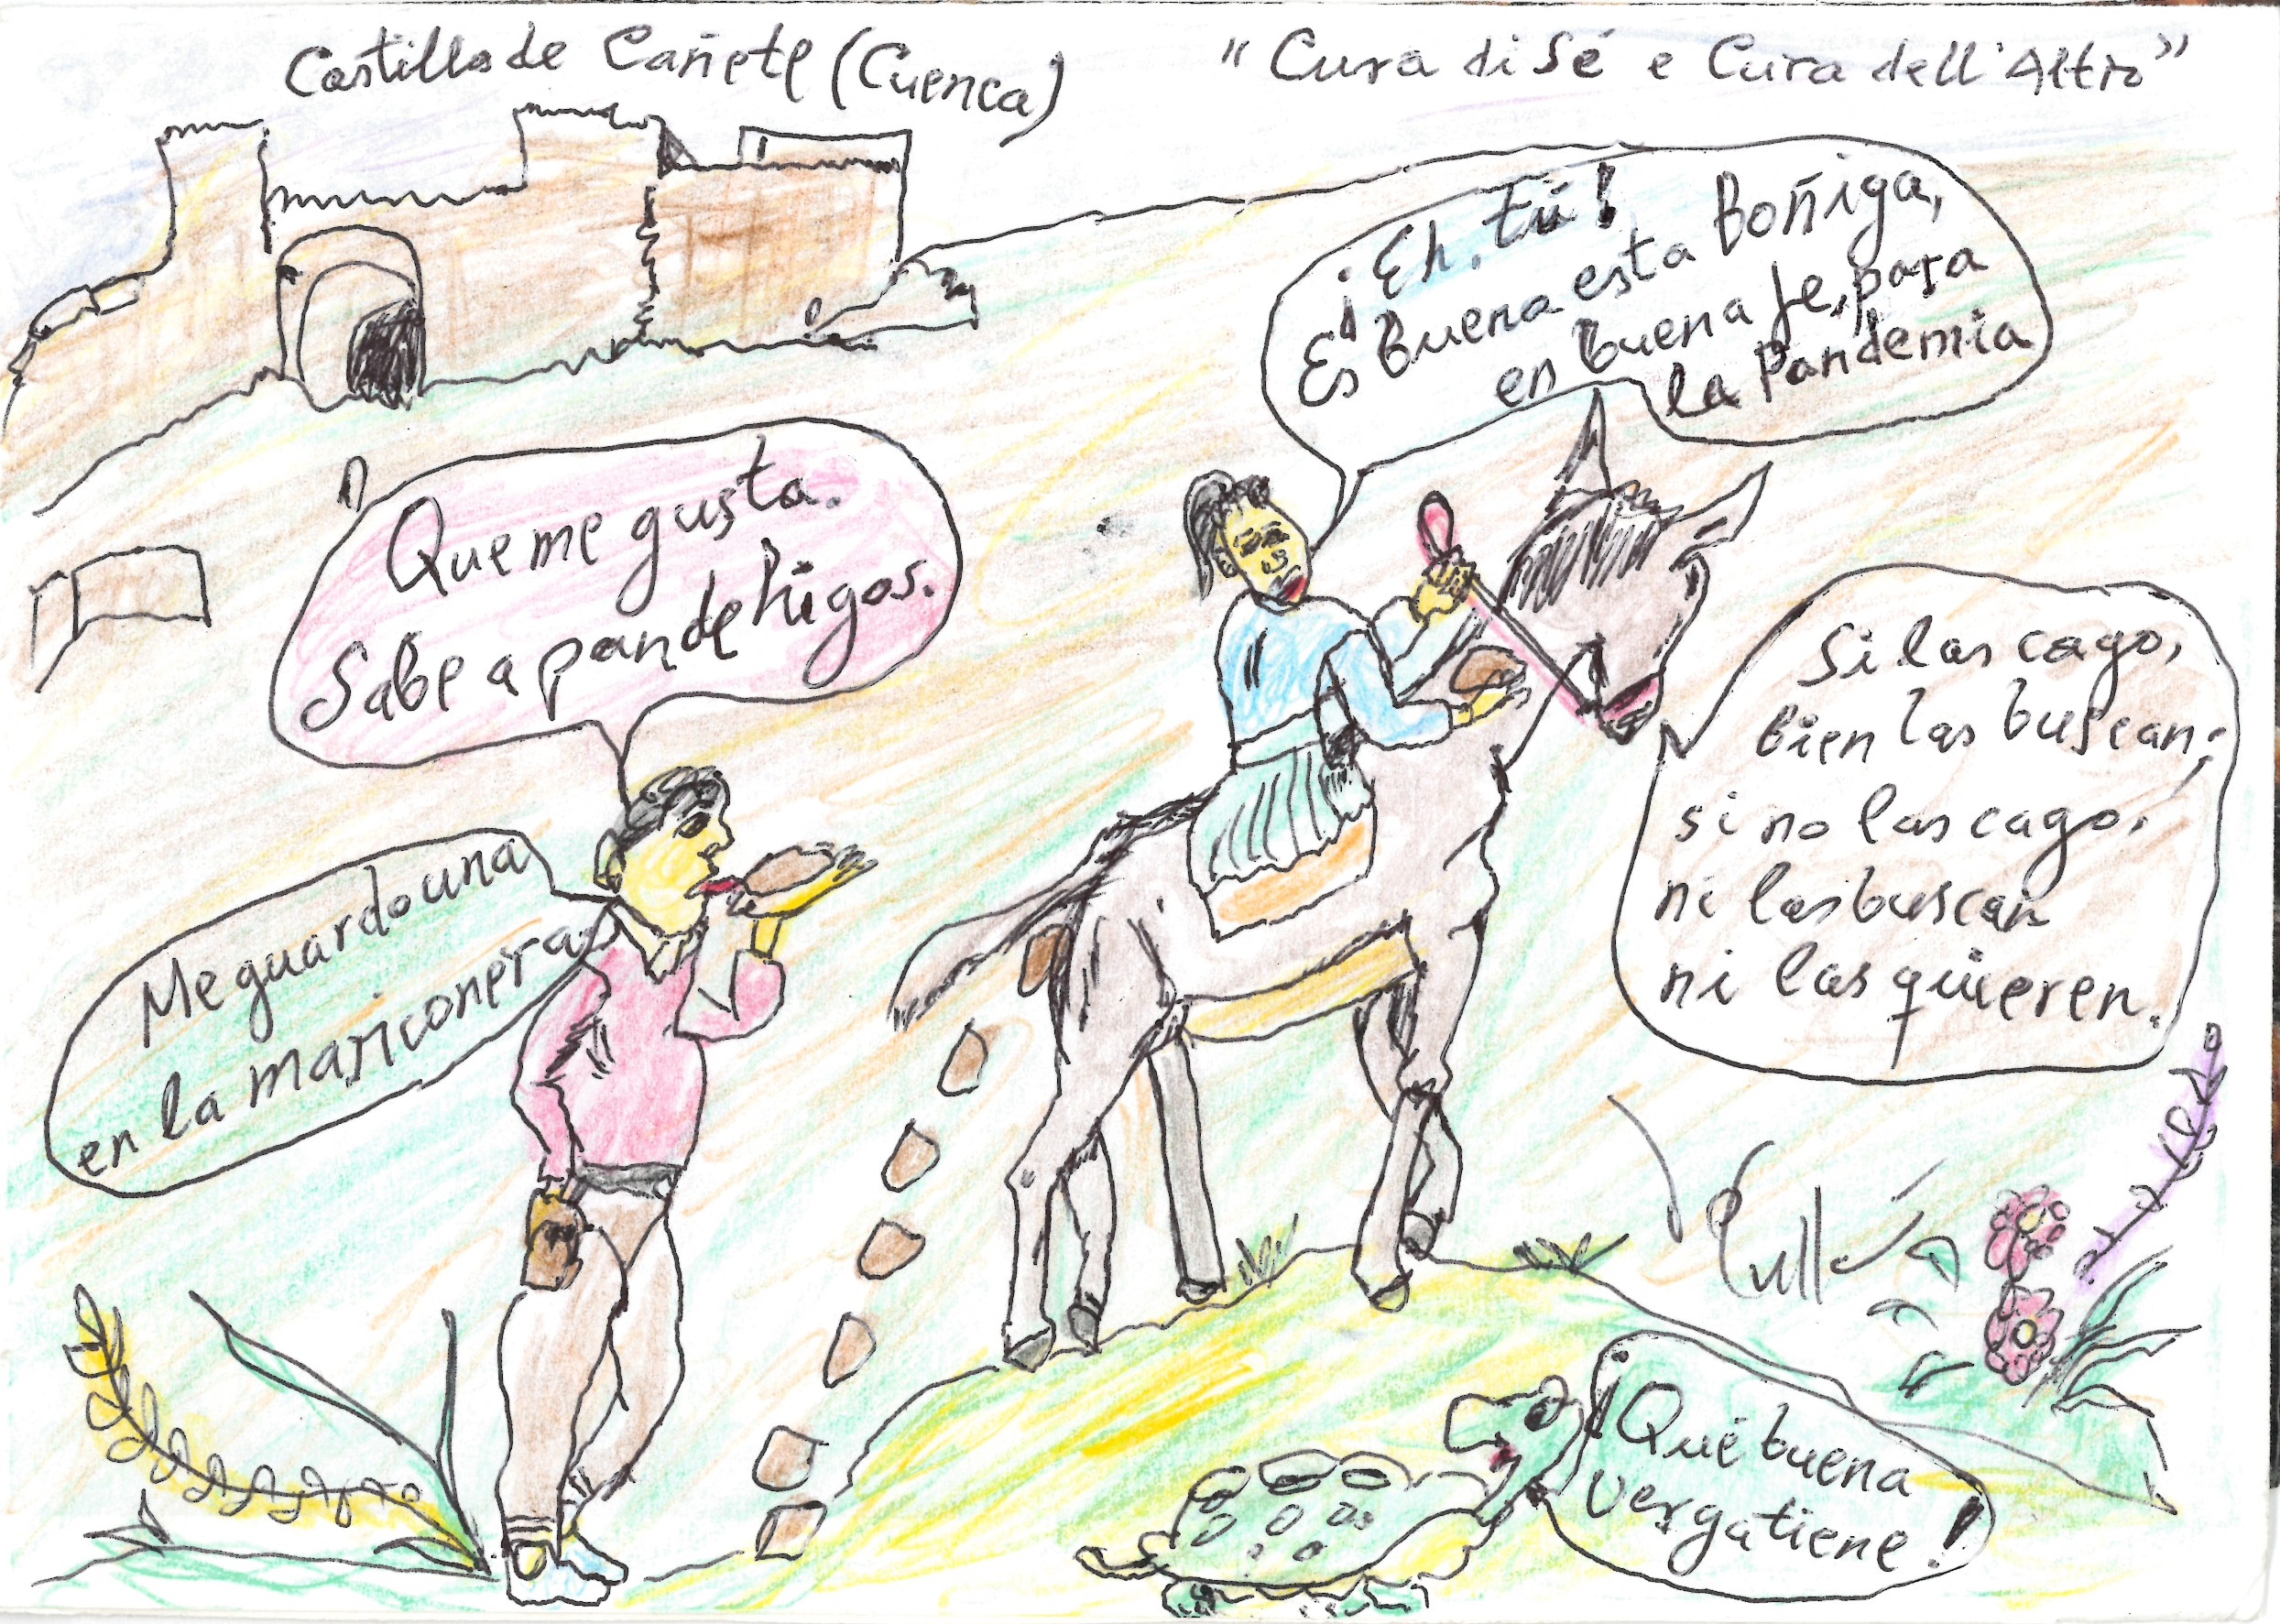 Castillo de Cañete (Cuenca)
"Cura di Sé e Cura dell'Altro"
¡Eh, tú!
Es buena esta Boñiga,
en buena fe, para
la Pandemia
Que me gusta.
Sabe a pan de higos.
Si las cago,
bien las buscan;
si no las cago,
ni las buscan
ni las quieren.
Me guardo una
en la mariconera
¡Qué buena
verga tiene!